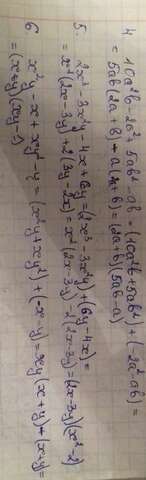 4 10a²b - 2a² + 5ab² - ab = (10a²b + 5ab²) + (-2a² - ab) =
= 5ab(2a + b) + a(2a + b) = (2a + b)(5ab - a)
5. 2x³ - 3x²y - 4x + 6y = (2x³ - 3x²y) + (6y - 4x) =
= x²(2x - 3y) + 2(3y - 2x) = x²(2x - 3y) - 2(2x - 3y) = (2x - 3y)(x² - 2)
6 x²y - x + xy² - y = (x²y + xy²) + (-x - y) = xy(x + y) + (x + y) =
= (x + y)(xy - 1)